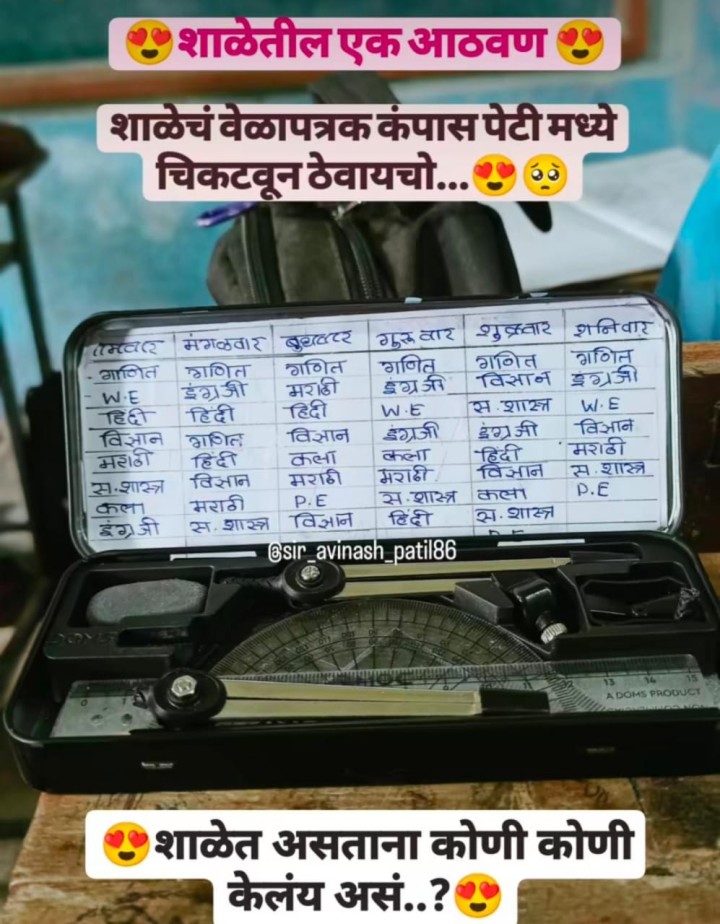 😍शाळेतील एक आठवण😍
शाळेचं वेळापत्रक कंपास पेटी मध्ये
चिकटवून ठेवायचो...😍🥺
मंगळवार बुधवार गुरुवार शुक्रवार शनिवार
- गणित गणित गणित गणित गणित गणित
- W.E इंग्रजी मराठी इंग्रजी विज्ञान इंग्रजी
हिंदी हिंदी हिंदी W.E स. शास्त्र W.E
विज्ञान गणित विज्ञान इंग्रजी इंग्रजी विज्ञान
मराठी हिंदी कला कला हिंदी मराठी
स. शास्त्र विज्ञान मराठी मराठी विज्ञान स. शास्त्र
कला मराठी P.E स. शास्त्र कला P.E
इंग्रजी स. शास्त्र विज्ञान हिंदी स. शास्त्र
@sir_avinash_patil86
DOMS
0 1 12 13 14 15
A DOMS PRODUCT
😍शाळेत असताना कोणी कोणी
केलंय असं..?😍